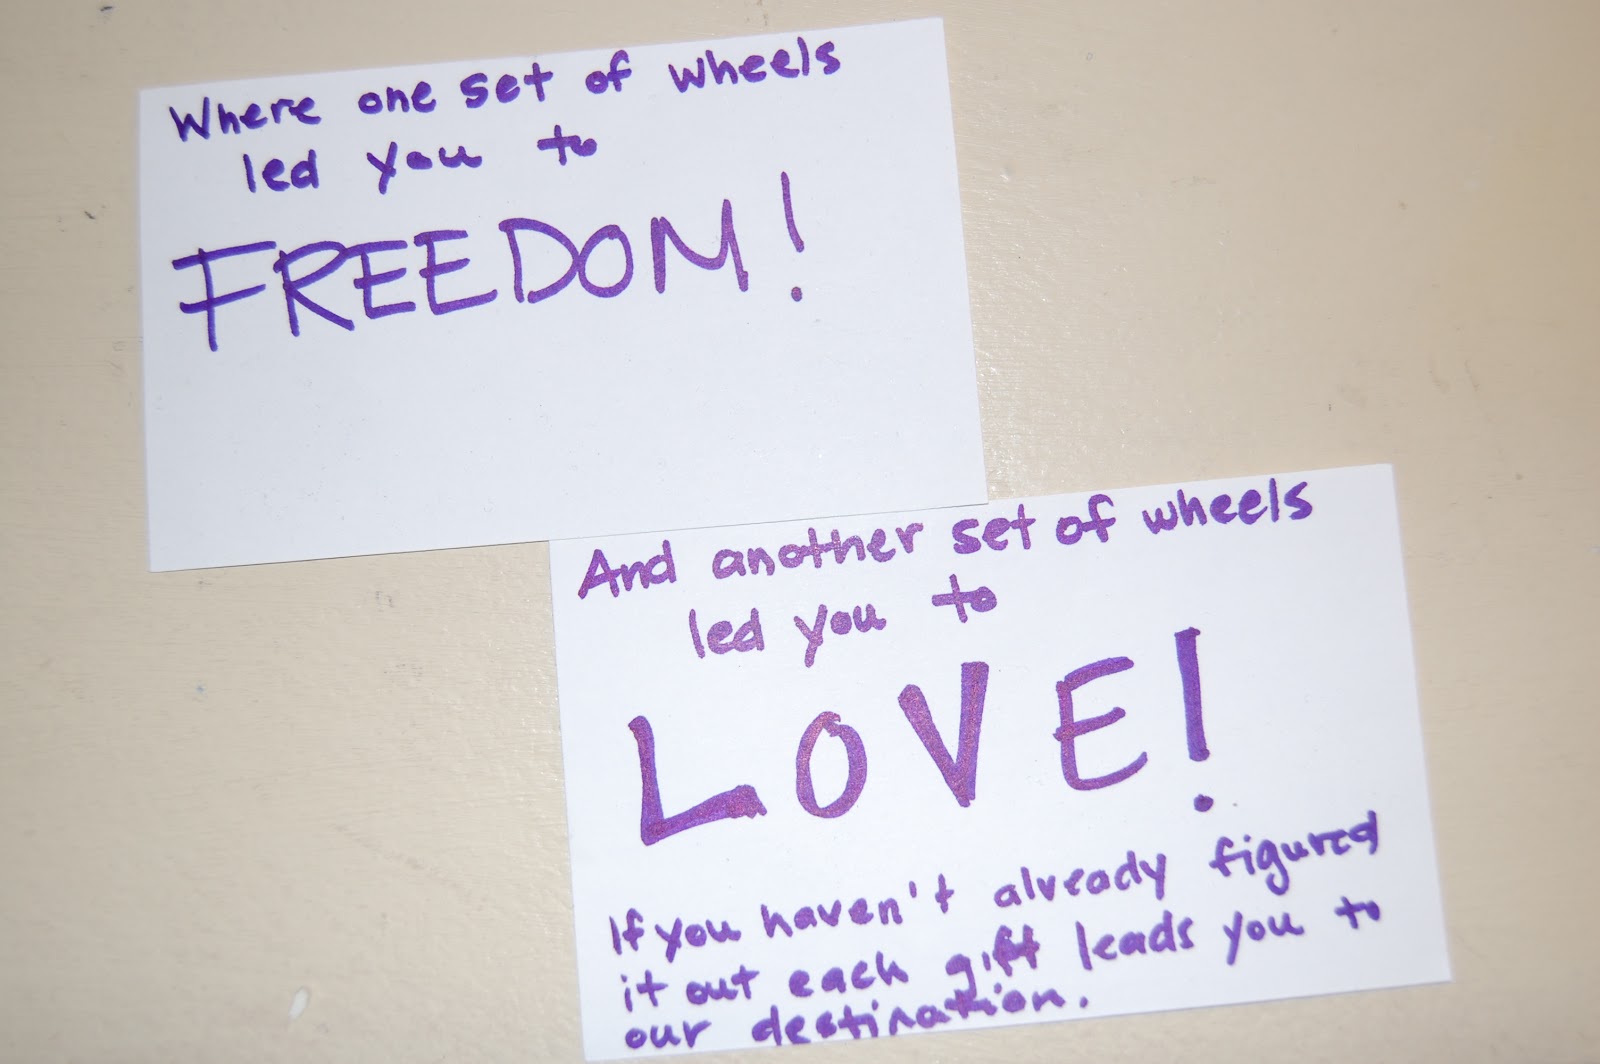 Where one set of wheels
led you to
FREEDOM!
And another set of wheels
led you to
LOVE!
If you haven't already figured
it out each gift leads you to
our destination.